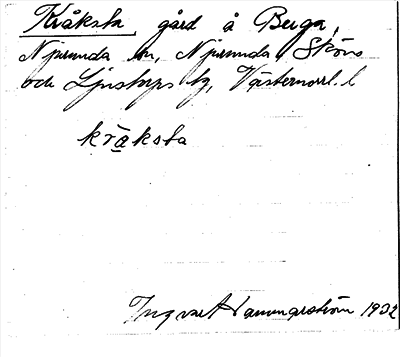 Kråksta gård å Berga,
Njurunda sn, Njurunda, Sköns
och Ljustorps tg, Västernorrl. l
kråksta
Ingvar Hammarström 1932